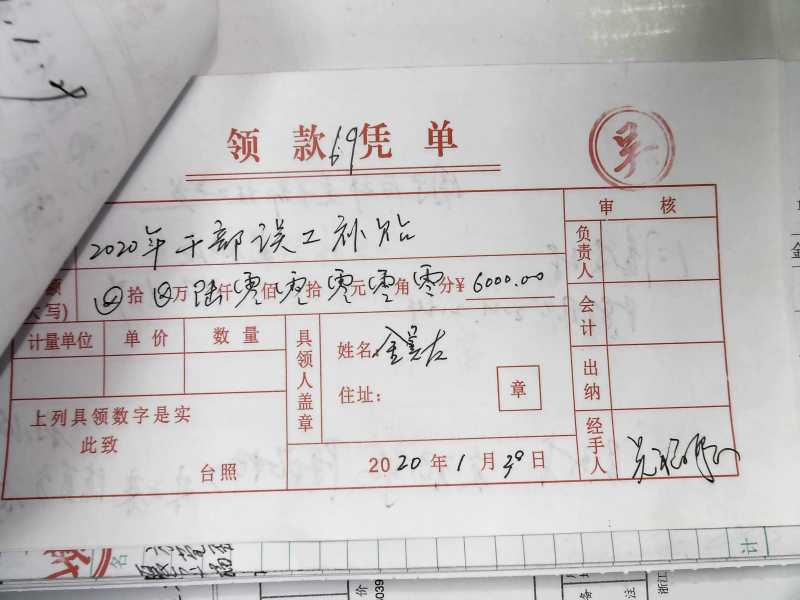 领款凭单
69
吴
审核
2020年干部误工补贴
负责人
拾 万陆仟零佰零拾零元零角零分¥6000.00
写)
会计
计量单位 单价 数量
具领人盖章
姓名
住址:
章
出纳
上列具领数字是实
此致
台照
2020年1月30日
经手人
名
计
价
备注
浙江
039